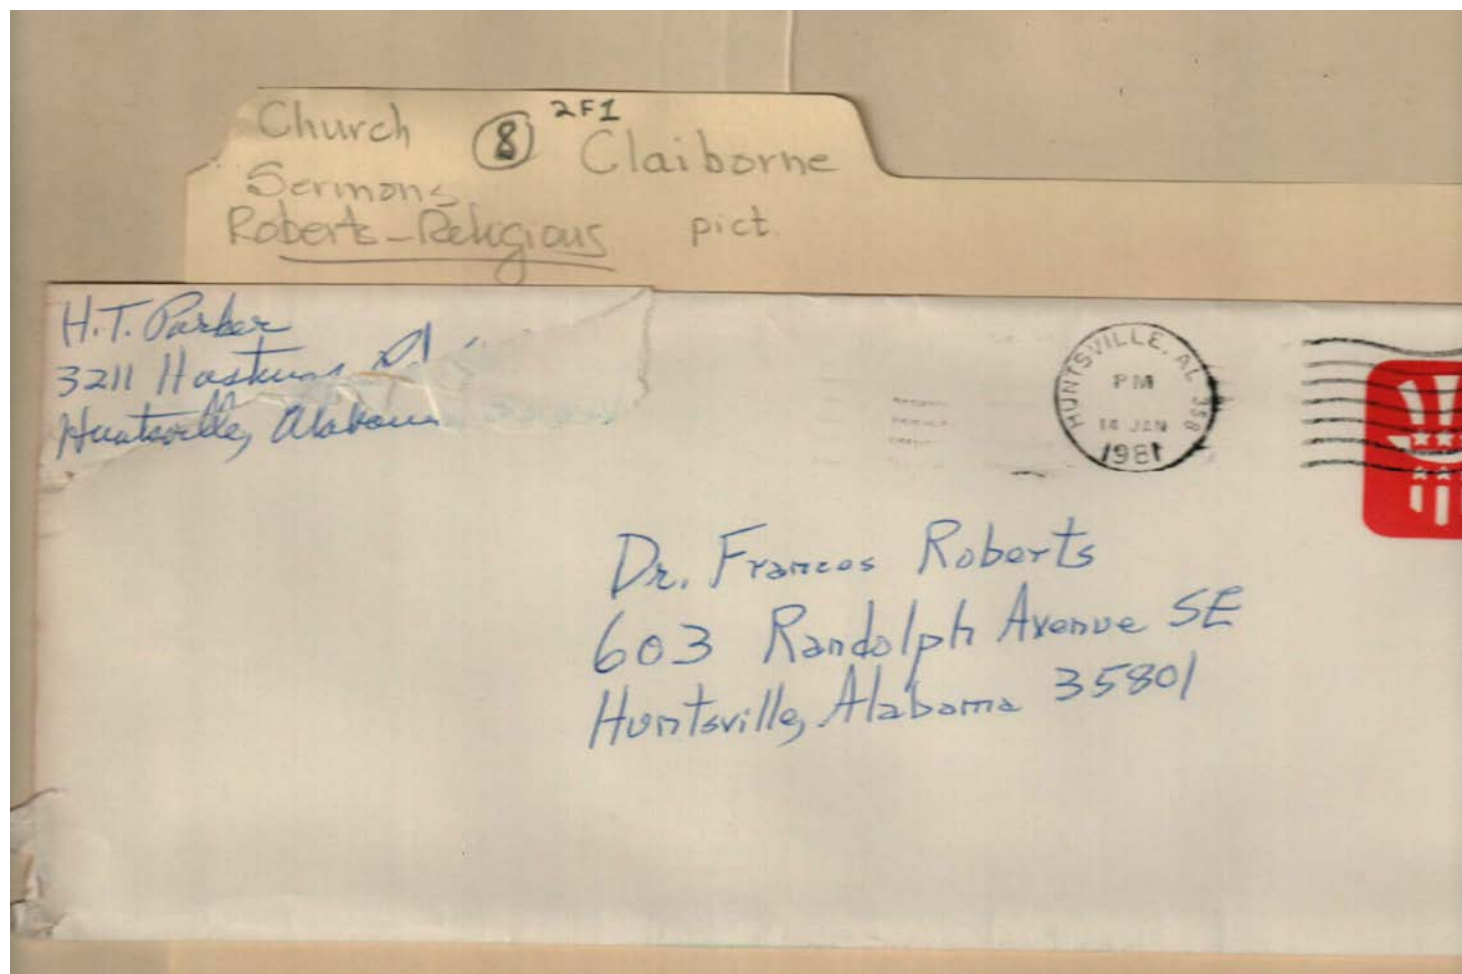 Church
8
2F1
Claiborne
Sermons
Roberts-Religious
pict.
H.T. Parker
3211
Huntsville, Alabama
HUNTSVILLE, AL 358
PM
14 JAN
1981
Dr. Frances Roberts
603 Randolph Avenue SE
Huntsville, Alabama 35801